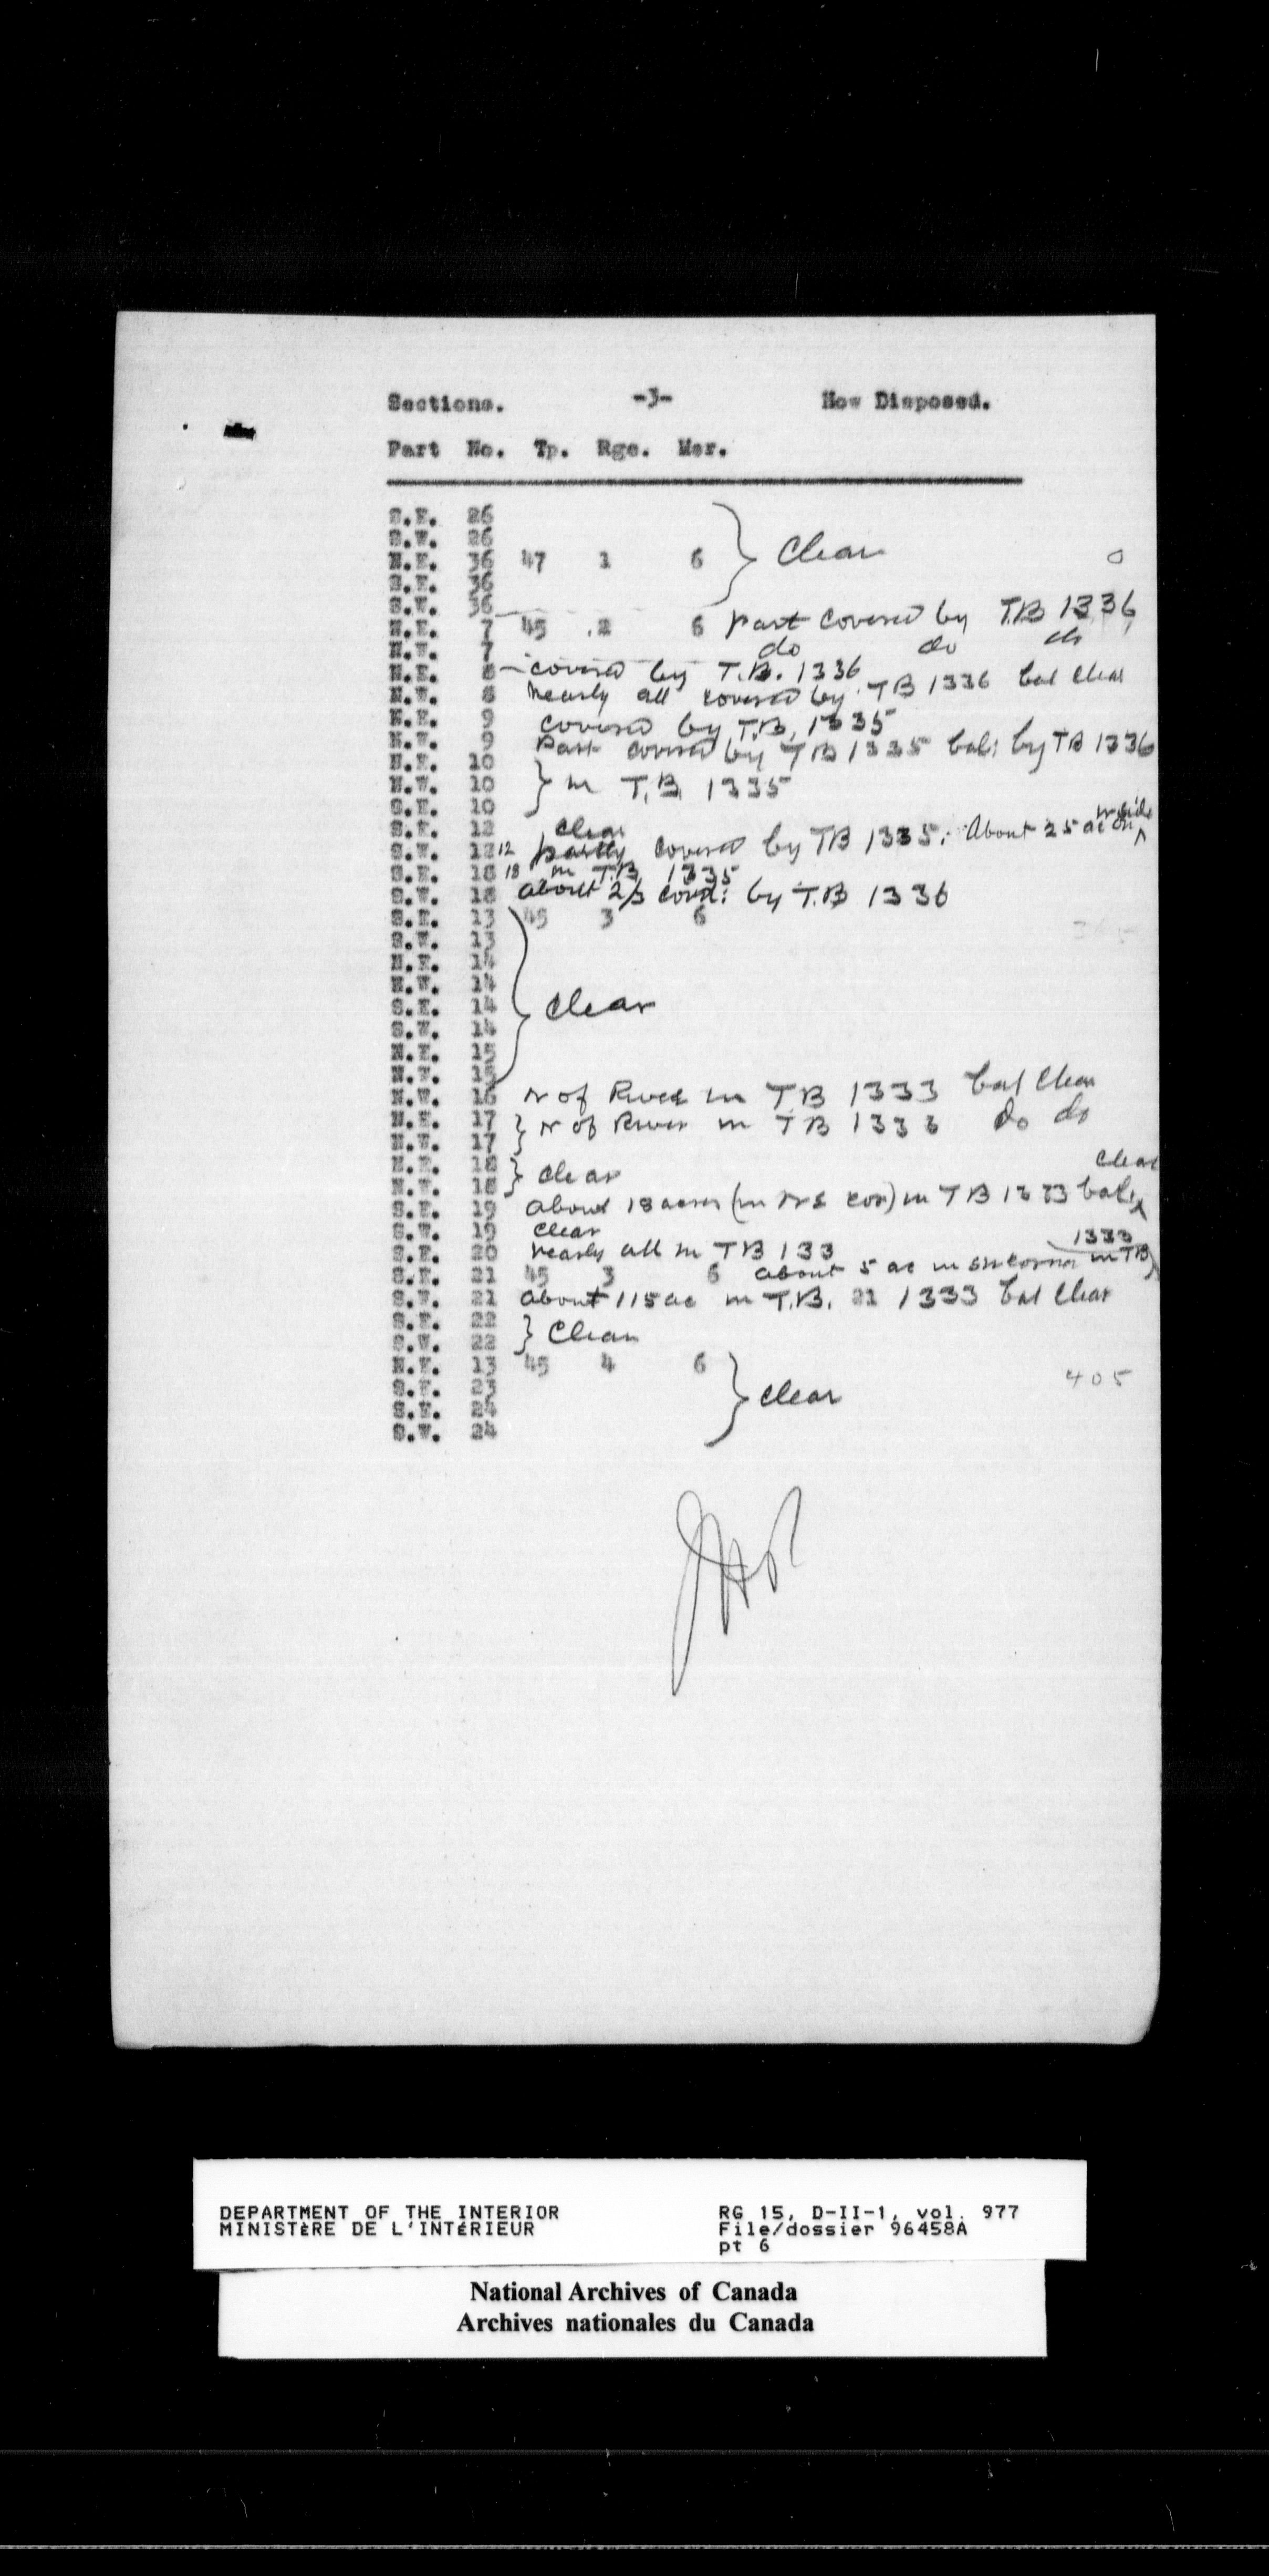 Sections. -3- How Disposed.
Part No. Tp. Rge. Mer.
S.E. 26
S.W. 26
N.E. 36 47 1 6 } Clear
S.E. 36
S.W. 36
N.E. 7 45 2 6 part covered by T.B 1336
N.W. 7 do do do
N.E. 8 covered by T.B. 1336
N.W. 8 nearly all covered by TB 1336 bal clear
N.E. 9 covered by T.B. 1335
N.W. 9 Part covered by TB 1335 bal: by TB 1336
N.E. 10
N.W. 10 } in T.B. 1335
S.E. 10
S.E. 12 clear
S.W. 12 12 partly covered by TB 1335. About 25 ac on W side
S.E. 18 18 in T.B. 1335
S.W. 18 about 2/3 covd: by T.B 1336
S.E. 13 45 3 6
S.W. 13
N.E. 14
N.W. 14
S.E. 14 } Clear
S.W. 14
N.E. 15
N.W. 15
N.W. 16 N of River in T.B 1333 bal Clear
N.E. 17 } N of River in TB 1333 do do
N.W. 17
N.E. 18 } clear
N.W. 18
S.E. 19 about 18 acres (in NE cor) in TB 1333 bal: clear
S.W. 19 clear
S.E. 20 nearly all in TB 133
S.E. 21 45 3 6 about 5 ac in SW corner in TB 1333
S.W. 21 about 115 ac in T.B. 21 1333 bal clear
S.E. 22
S.W. 22 } Clear
N.E. 13 45 4 6
S.E. 23 } clear 405
S.E. 24
S.W. 24
DEPARTMENT OF THE INTERIOR RG 15, D-II-1, vol. 977
MINISTÈRE DE L'INTÉRIEUR File/dossier 96458A
pt 6
National Archives of Canada
Archives nationales du Canada